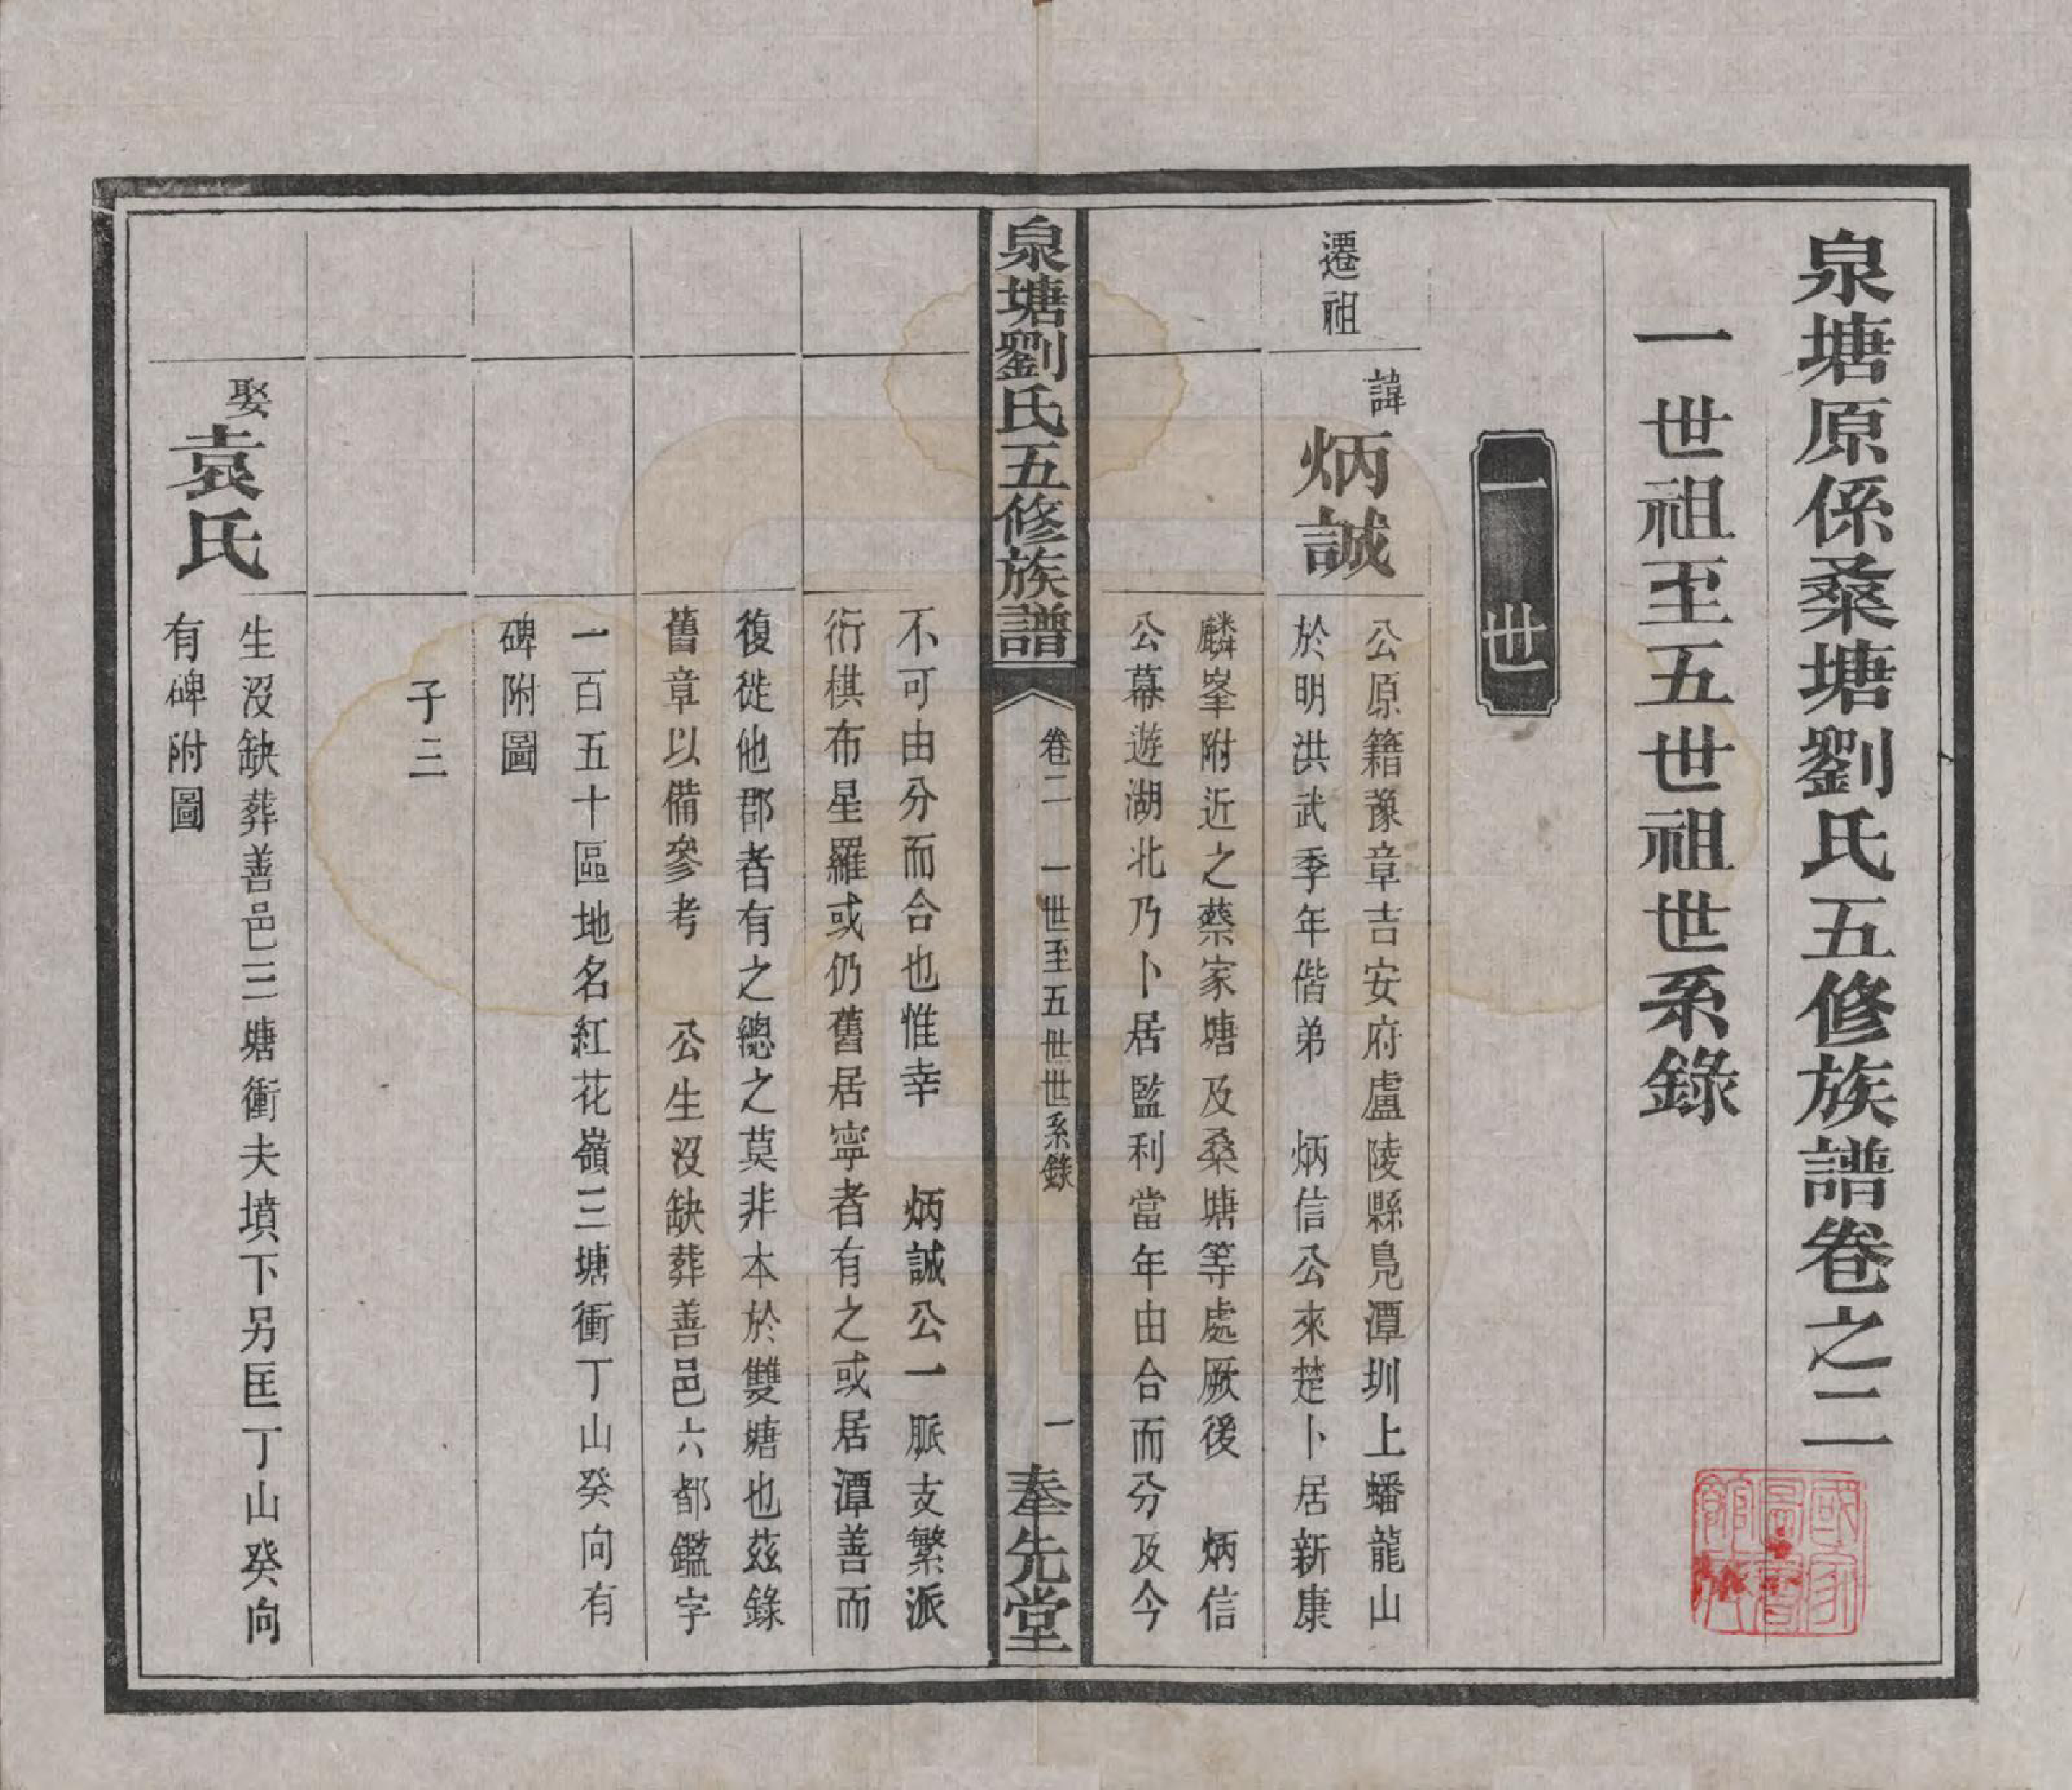 泉塘原係桑塘劉氏五修族譜卷之二
一世祖至五世祖世系錄
一世
遷祖
諱
炳誠
公原籍豫章吉安府盧陵縣鳧潭圳上蟠龍山
於明洪武季年偕弟 炳信公來楚卜居新康
麟峯附近之蔡家塘及桑塘等處厥後 炳信
公幕遊湖北乃卜居監利當年由合而分及今
泉塘劉氏五修族譜
卷二 一世至五世世系錄
一
奉先堂
不可由分而合也惟幸 炳誠公一脈支繁派
衍棋布星羅或仍舊居寧者有之或居潭善而
復徙他郡者有之總之莫非本於雙塘也茲錄
舊章以備參考 公生沒缺葬善邑六都鑑字
一百五十區地名紅花嶺三塘衝丁山癸向有
碑附圖
子三
娶
袁氏
生沒缺葬善邑三塘衝夫墳下另匡丁山癸向
有碑附圖